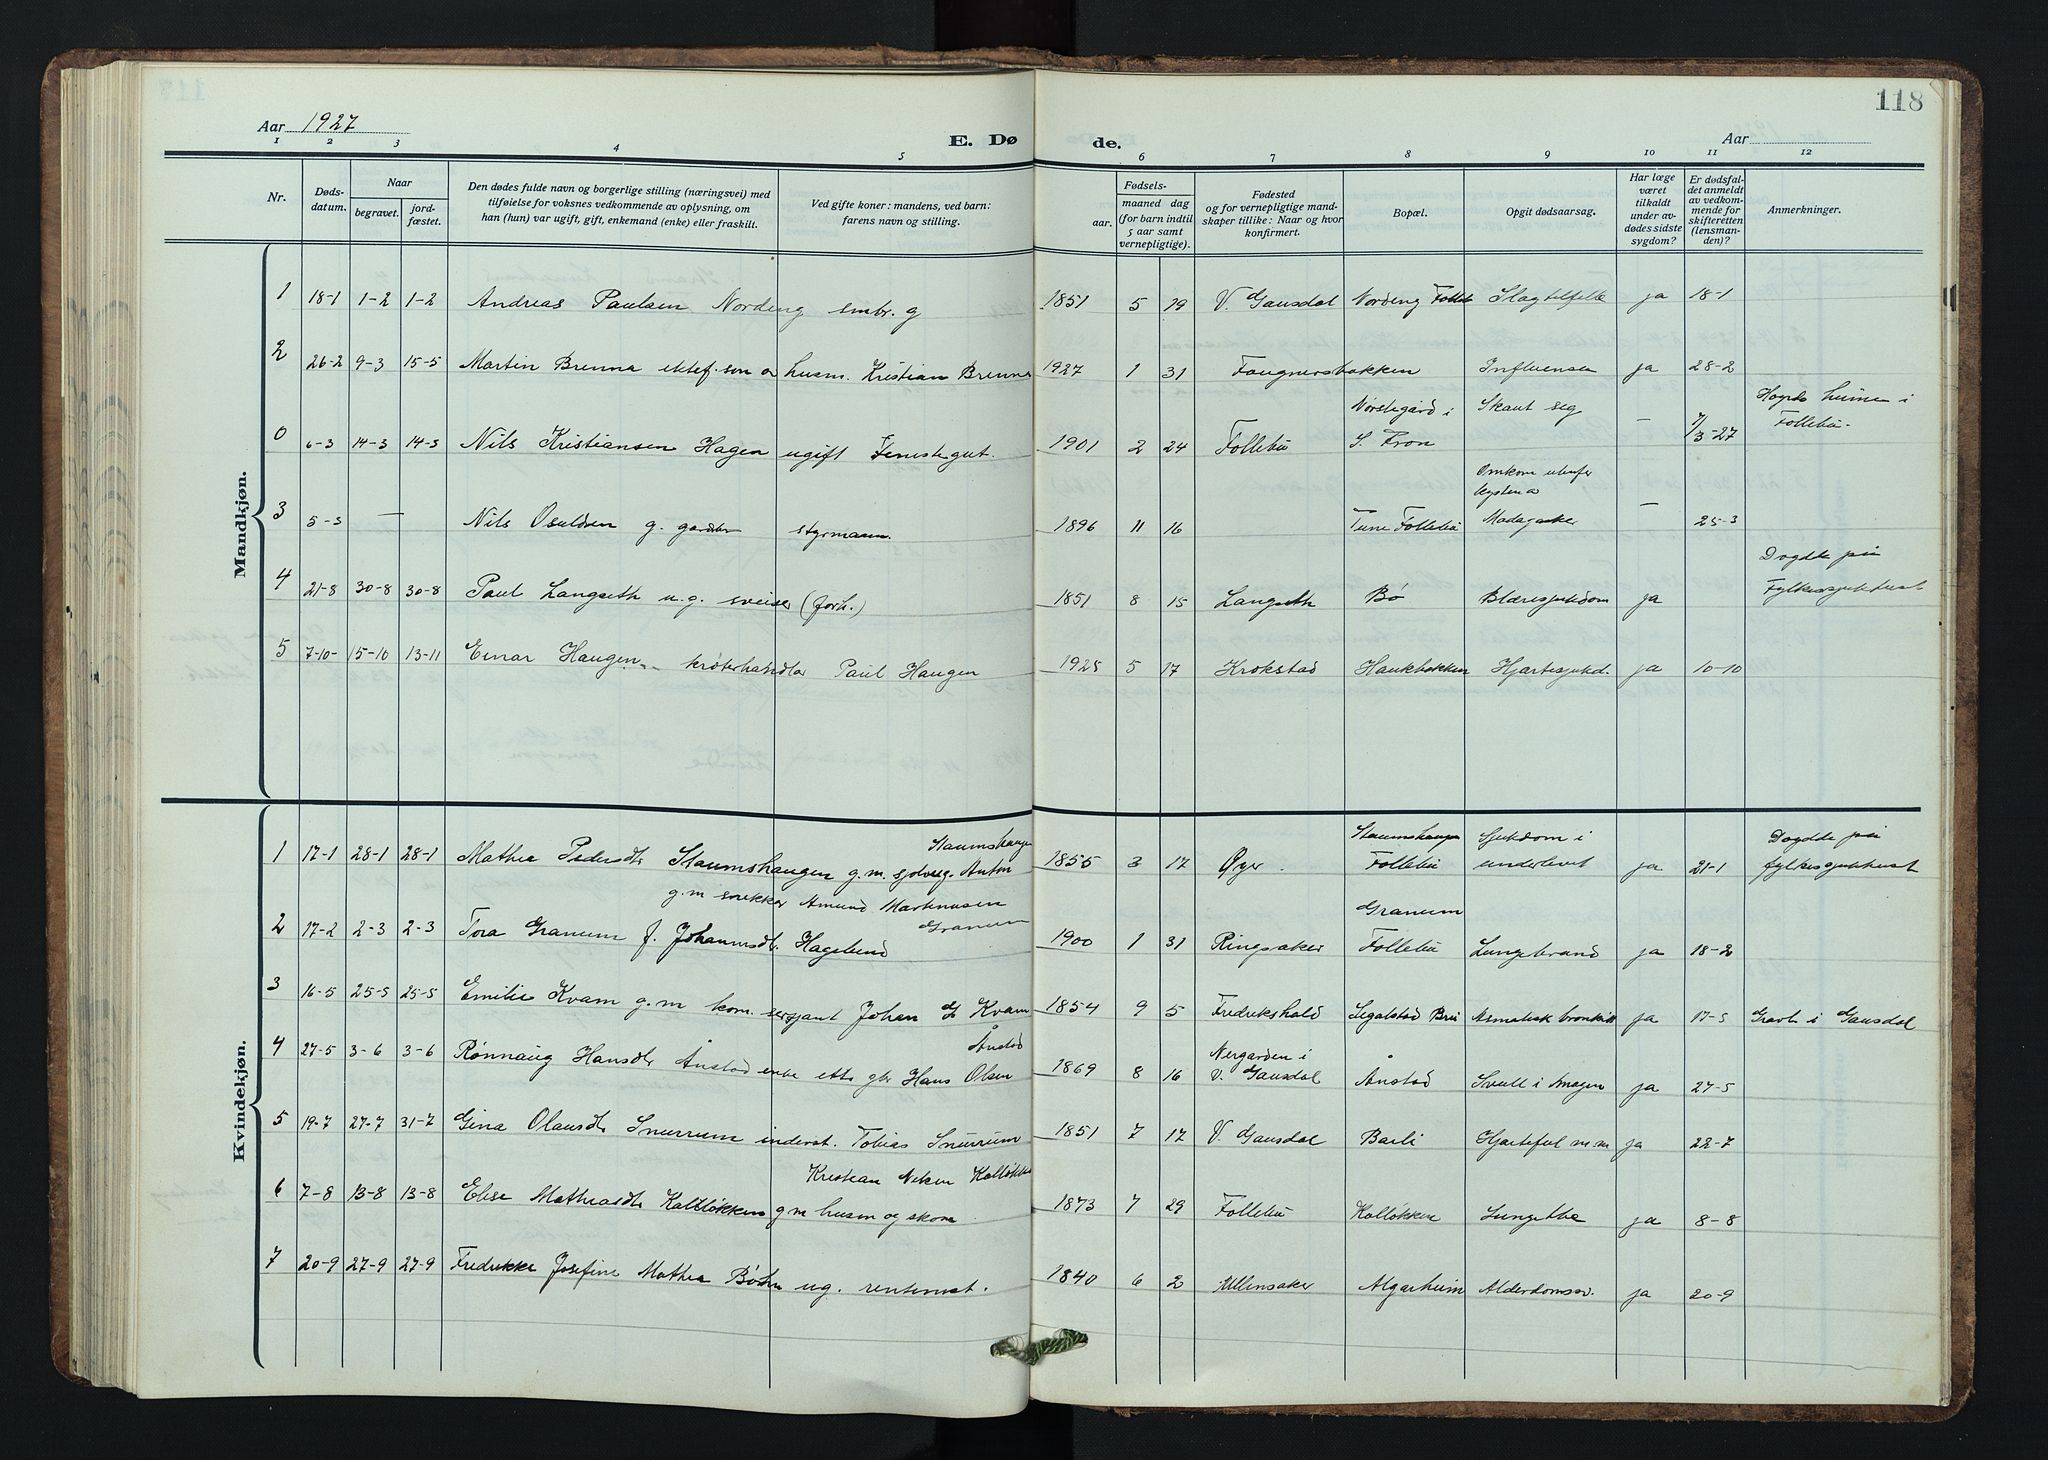 118
Aar 1927
E. Dø
de.
Aar
1 2 3 4 5 6 7 8 9 10 11 12
Nr.
Døds-
datum.
Naar
begravet.
jord-
fæstet.
Den dødes fulde navn og borgerlige stilling (næringsvei) med
tilføielse for voksnes vedkommende av oplysning, om
han (hun) var ugift, gift, enkemand (enke) eller fraskilt.
Ved gifte koner: mandens, ved barn:
farens navn og stilling.
Fødsels-
aar.
maaned dag
(for barn indtil
5 aar samt
vernepligtige).
Fødested
og for vernepligtige mand-
skaper tillike: Naar og hvor
konfirmert.
Bopæl.
Opgit dødsaarsag.
Har læge
været
tilkaldt
under av-
dødes sidste
sygdom?
Er dødsfal-
det anmeldt
av vedkom-
mende for
skifteretten
(lensman-
den)?
Anmerkninger.
Mandkjøn.
1 18-1 1-2 1-2 Andreas Paulsen Nordeng smbr. g 1851 5 19 V. Gausdal Nordeng Slagtilfelle ja 18-1
2 26-2 9-3 15-5 Martin Brenna ektef. son av husm. Kristian Brenna 1927 1 31 Faugnersbakken Influensa ja 28-2
0 6-3 14-3 14-3 Nils Kristiansen Hagen ugift 1901 2 24 Follebu Norstegård i
S. Fron Skaut seg — 7/3-27 heime i
Follebu.
3 5-3 — Nils g. styrmann. 1896 11 16 Follebu Omkom utenfor
kysten av
Madagaskar — 25-3
4 21-8 30-8 30-8 Paul Langseth u.g. sveiser (forh.) 1851 8 15 Langseth Bø Blæresjukdom ja Døydde på
Fylkessjukhuset
5 7-10- 15-10 13-11 Einar Haugen krøterhandlar Paul Haugen 1925 5 17 Krokstad Haukbakken Hjartesjukd. ja 10-10
Kvindekjøn.
1 17-1 28-1 28-1 Mathea Pedersdtr Staumshaugen g.m. sjølveig. Anton
Staumshaugen 1855 3 17 Øyer Staumshaugen
Follebu Sjukdom i
underlivet ja 21-1 Døydde på
fylkessjukhuset
2 17-2 2-3 2-3 Tora Granum f. Johannsdtr. Hagelund
g.m snekker Amund Martinusen
Granum 1900 1 31 Ringsaker Granum
Follebu Lungebrand ja 18-2
3 16-5 25-5 25-5 Emilie Kvam g.m kom. sersjant Johan G Kvam 1854 9 5 Fredrikshald Segalstad Bru Asmatisk bronkitt ja 17-5 Gravl. i Gausdal
4 27-5 3-6 3-6 Rønnaug Hansdtr Ånstad enke etter gbr Hans Olsen
Ånstad 1869 8 16 Nergarden i
V. Gausdal Ånstad Svull i magen ja 27-5
5 19-7 27-7 31-7 Gina Olausdtr Snurrum inderst. Tobias Snurrum 1851 7 17 V. Gausdal Barli Hjartefeil m m ja 22-7
6 7-8 13-8 13-8 Elise Mathiasdtr Kalløkken g m husm og skom
Kristian Kalløkken 1873 7 29 Follebu Kalløkken ja 8-8
7 20-9 27-9 27-9 Fredrikke Josefine Mathea Bøhm ug. 1840 6 2 Ullensaker Algarheim Alderdomssv. ja 20-9